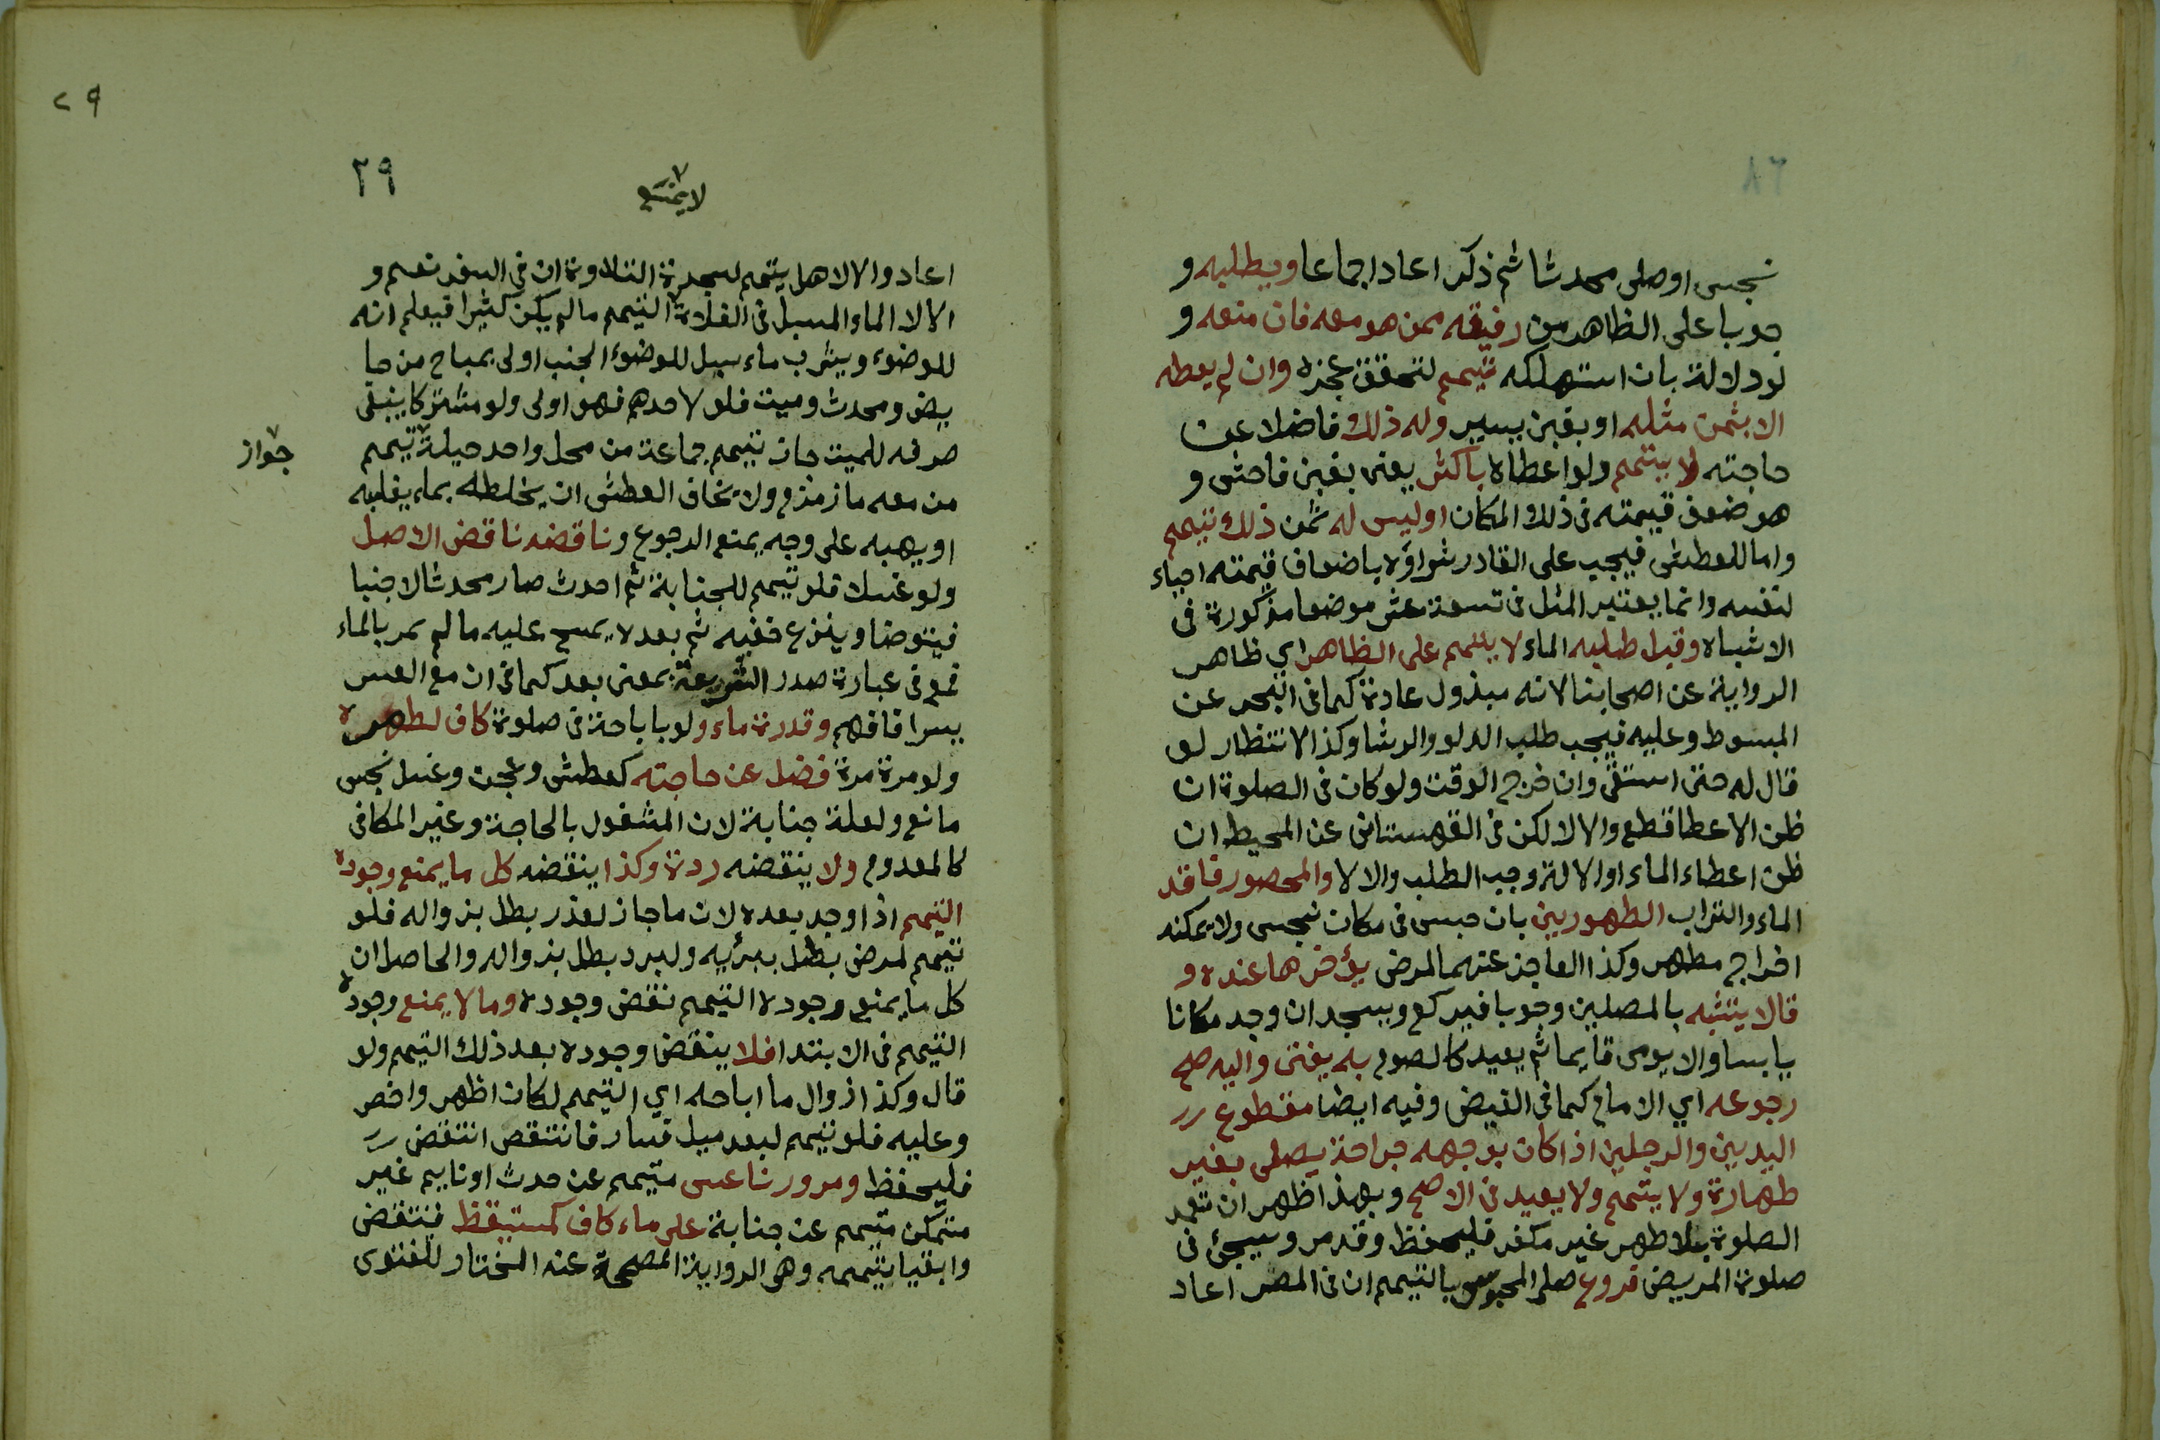 نجس او صلى محدثا ثم ذكر اعاد اجماعا ويطلبه و
جوبا على الظاهر من رفيقه ممن هو معه فان منعه و
لو دلالة بان استهلكه تيمم لتحقق عجزه وان لم يعطه
الا بثمن مثله او بغبن يسير وله ذلك فاضلا عن
حاجته لا يتيمم ولو اعطاه باكثر يعنى بغبن فاحش و
هو ضعف قيمته فى ذلك المكان اوليس له ثمن ذلك تيمم
واما للعطش فيجب على القادر شراؤه باضعاف قيمته احياء
لنفسه وانما يعتبر المثل فى تسعة عشر موضعا مذكورة فى
الاشباه وقبل طلبه الماء لا يتيمم على الظاهر اي ظاهر
الرواية عن اصحابنا لانه مبذول عادة كما فى البحر عن
المبسوط وعليه فيجب طلب الدلو والرشا وكذا الانتظار لو
قال له حتى استقى وان خرج الوقت ولو كان فى الصلوة ان
ظن الاعطا قطع والا لا لكن فى القهستانى عن المحيط ان
ظن اعطاء الماء او الالة وجب الطلب والا لا والمحصور فاقد
الماء والتراب الطهورين بان حبس فى مكان نجس ولا يمكنه
اخراج مطهر وكذا العاجز عنهما لمرض يؤخرها عنده و
قالا يتشبه بالمصلين وجوبا فيركع ويسجد ان وجد مكانا
يابسا والا يومى قايما ثم يعيد كالصوم به يفتى واليه صح
رجوعه اي الامام كما فى الفيض وفيه ايضا مقطوع
اليدين والرجلين اذا كان بوجهه جراحة يصلى بغير
طهارة ولا يتيمم ولا يعيد فى الاصح وبهذا ظهر ان تعمد
الصلوة بلا طهر غير مكفر فليحفظ وقد مر وسيجئ فى
صلوة المريض فروع صلى المحبوس بالتيمم ان فى المصر اعاد
٢٩
٢٩
لا يمنع
اعاد والا لا هل يتيمم لسجدة التلاوة ان فى السفر نعم و
الا لا الماء المسبل فى الفلاة التيمم ما لم يكن كثيرا فيعلم انه
للوضوء ويشرب ماء سبيل للوضوء الجنب اولى بمباح من حا
يض ومحدث وميت فلو لاحدهم فهو اولى ولو مشتركا ينبغى
صرفه للميت جاز تيمم جماعة من محل واحد حيلة تيمم
جواز
من معه ماء زمزم ولا يخاف العطش ان يخلطه بماء يغلبه
او يهبه على وجه يمنع الرجوع وناقضه ناقض الاصل
ولو غسلا فلو تيمم للجنابة ثم احدث صار محدثا لا جنبا
فيتوضا وينزع خفيه ثم بعد لا يمسح عليه ما لم يمر بالماء
فمع فى عبارة صدر الشريعة بمعنى بعد كما فى ان مع العسر
يسرا فافهم وقدرة ماء ولو باباحة فى صلوة كاف لطهره
ولو مرة مرة فضل عن حاجته كعطش وعجن وغسل نجس
مانع ولعلة جنابة لان المشغول بالحاجة وغير المكافى
كالمعدوم ولا ينقضه ردة وكذا ينقضه كل ما يمنع وجوده
التيمم اذا وجد بعده لان ما جاز لعذر بطل بزواله فلو
تيمم لمرض بطل ببرئيه ولبرد بطل بزواله والحاصل ان
كل ما يمنع وجوده التيمم نقض وجوده وما لا يمنع وجوده
التيمم فى الابتدا فلا ينقض وجوده بعد ذلك التيمم ولو
قال وكذا زوال ما اباحه اي التيمم لكان اظهر واخصر
وعليه فلو تيمم لبعد ميل فسار فانتقص انتقض
فليحفظ ومرور ناعس متيمم عن حدث او نايم غير
متمكن متيمم عن جنابة على ماء كاف كمستيقظ فنتقض
وابقيا تيممه وهى الرواية المصححة عنه المختار للفتوى